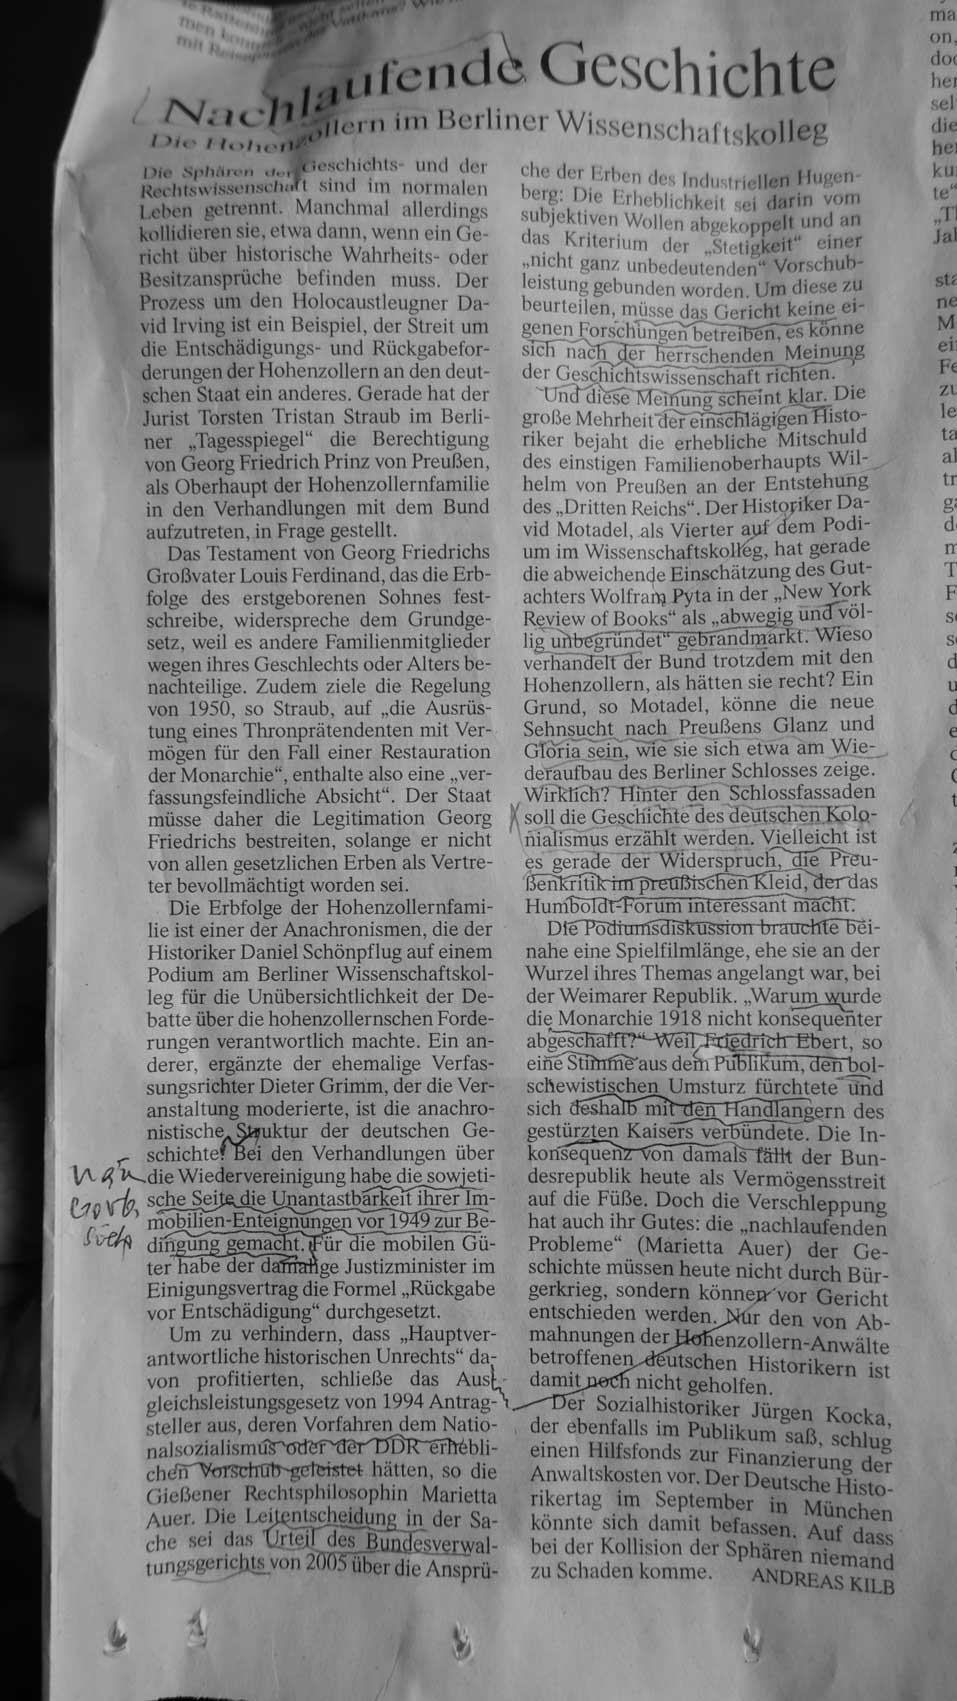 men
mit
Nachlaufende Geschichte
Die Hohenzollern im Berliner Wissenschaftskolleg
Die Sphären der Geschichts- und der
Rechtswissenschaft sind im normalen
Leben getrennt. Manchmal allerdings
kollidieren sie, etwa dann, wenn ein Ge-
richt über historische Wahrheits- oder
Besitzansprüche befinden muss. Der
Prozess um den Holocaustleugner Da-
vid Irving ist ein Beispiel, der Streit um
die Entschädigungs- und Rückgabefor-
derungen der Hohenzollern an den deut-
schen Staat ein anderes. Gerade hat der
Jurist Torsten Tristan Straub im Berli-
ner „Tagesspiegel“ die Berechtigung
von Georg Friedrich Prinz von Preußen,
als Oberhaupt der Hohenzollernfamilie
in den Verhandlungen mit dem Bund
aufzutreten, in Frage gestellt.
Das Testament von Georg Friedrichs
Großvater Louis Ferdinand, das die Erb-
folge des erstgeborenen Sohnes fest-
schreibe, widerspreche dem Grundge-
setz, weil es andere Familienmitglieder
wegen ihres Geschlechts oder Alters be-
nachteilige. Zudem ziele die Regelung
von 1950, so Straub, auf „die Ausrüs-
tung eines Thronprätendenten mit Ver-
mögen für den Fall einer Restauration
der Monarchie“, enthalte also eine „ver-
fassungsfeindliche Absicht“. Der Staat
müsse daher die Legitimation Georg
Friedrichs bestreiten, solange er nicht
von allen gesetzlichen Erben als Vertre-
ter bevollmächtigt worden sei.
Die Erbfolge der Hohenzollernfami-
lie ist einer der Anachronismen, die der
Historiker Daniel Schönpflug auf einem
Podium am Berliner Wissenschaftskol-
leg für die Unübersichtlichkeit der De-
batte über die hohenzollernschen Forde-
rungen verantwortlich machte. Ein an-
derer, ergänzte der ehemalige Verfas-
sungsrichter Dieter Grimm, der die Ver-
anstaltung moderierte, ist die anachro-
nistische Struktur der deutschen Ge-
schichte. Bei den Verhandlungen über
die Wiedervereinigung habe die sowjeti-
sche Seite die Unantastbarkeit ihrer Im-
mobilien-Enteignungen vor 1949 zur Be-
dingung gemacht. Für die mobilen Gü-
ter habe der damalige Justizminister im
Einigungsvertrag die Formel „Rückgabe
vor Entschädigung“ durchgesetzt.
Um zu verhindern, dass „Hauptver-
antwortliche historischen Unrechts“ da-
von profitierten, schließe das Aus-
gleichsleistungsgesetz von 1994 Antrag-
steller aus, deren Vorfahren dem Natio-
nalsozialismus oder der DDR erhebli-
chen Vorschub geleistet hätten, so die
Gießener Rechtsphilosophin Marietta
Auer. Die Leitentscheidung in der Sa-
che sei das Urteil des Bundesverwal-
tungsgerichts von 2005 über die Ansprü-
che der Erben des Industriellen Hugen-
berg: Die Erheblichkeit sei darin vom
subjektiven Wollen abgekoppelt und an
das Kriterium der „Stetigkeit“ einer
„nicht ganz unbedeutenden“ Vorschub-
leistung gebunden worden. Um diese zu
beurteilen, müsse das Gericht keine ei-
genen Forschungen betreiben, es könne
sich nach der herrschenden Meinung
der Geschichtswissenschaft richten.
Und diese Meinung scheint klar. Die
große Mehrheit der einschlägigen Histo-
riker bejaht die erhebliche Mitschuld
des einstigen Familienoberhaupts Wil-
helm von Preußen an der Entstehung
des „Dritten Reichs“. Der Historiker Da-
vid Motadel, als Vierter auf dem Podi-
um im Wissenschaftskolleg, hat gerade
die abweichende Einschätzung des Gut-
achters Wolfram Pyta in der „New York
Review of Books“ als „abwegig und völ-
lig unbegründet“ gebrandmarkt. Wieso
verhandelt der Bund trotzdem mit den
Hohenzollern, als hätten sie recht? Ein
Grund, so Motadel, könne die neue
Sehnsucht nach Preußens Glanz und
Gloria sein, wie sie sich etwa am Wie-
deraufbau des Berliner Schlosses zeige.
Wirklich? Hinter den Schlossfassaden
soll die Geschichte des deutschen Kolo-
nialismus erzählt werden. Vielleicht ist
es gerade der Widerspruch, die Preu-
ßenkritik im preußischen Kleid, der das
Humboldt-Forum interessant macht.
Die Podiumsdiskussion brauchte bei-
nahe eine Spielfilmlänge, ehe sie an der
Wurzel ihres Themas angelangt war, bei
der Weimarer Republik. „Warum wurde
die Monarchie 1918 nicht konsequenter
abgeschafft?“ Weil Friedrich Ebert, so
eine Stimme aus dem Publikum, den bol-
schewistischen Umsturz fürchtete und
sich deshalb mit den Handlangern des
gestürzten Kaisers verbündete. Die In-
konsequenz von damals fällt der Bun-
desrepublik heute als Vermögensstreit
auf die Füße. Doch die Verschleppung
hat auch ihr Gutes: die „nachlaufenden
Probleme“ (Marietta Auer) der Ge-
schichte müssen heute nicht durch Bür-
gerkrieg, sondern können vor Gericht
entschieden werden. Nur den von Ab-
mahnungen der Hohenzollern-Anwälte
betroffenen deutschen Historikern ist
damit noch nicht geholfen.
Der Sozialhistoriker Jürgen Kocka,
der ebenfalls im Publikum saß, schlug
einen Hilfsfonds zur Finanzierung der
Anwaltskosten vor. Der Deutsche Histo-
rikertag im September in München
könnte sich damit befassen. Auf dass
bei der Kollision der Sphären niemand
zu Schaden komme. ANDREAS KILB